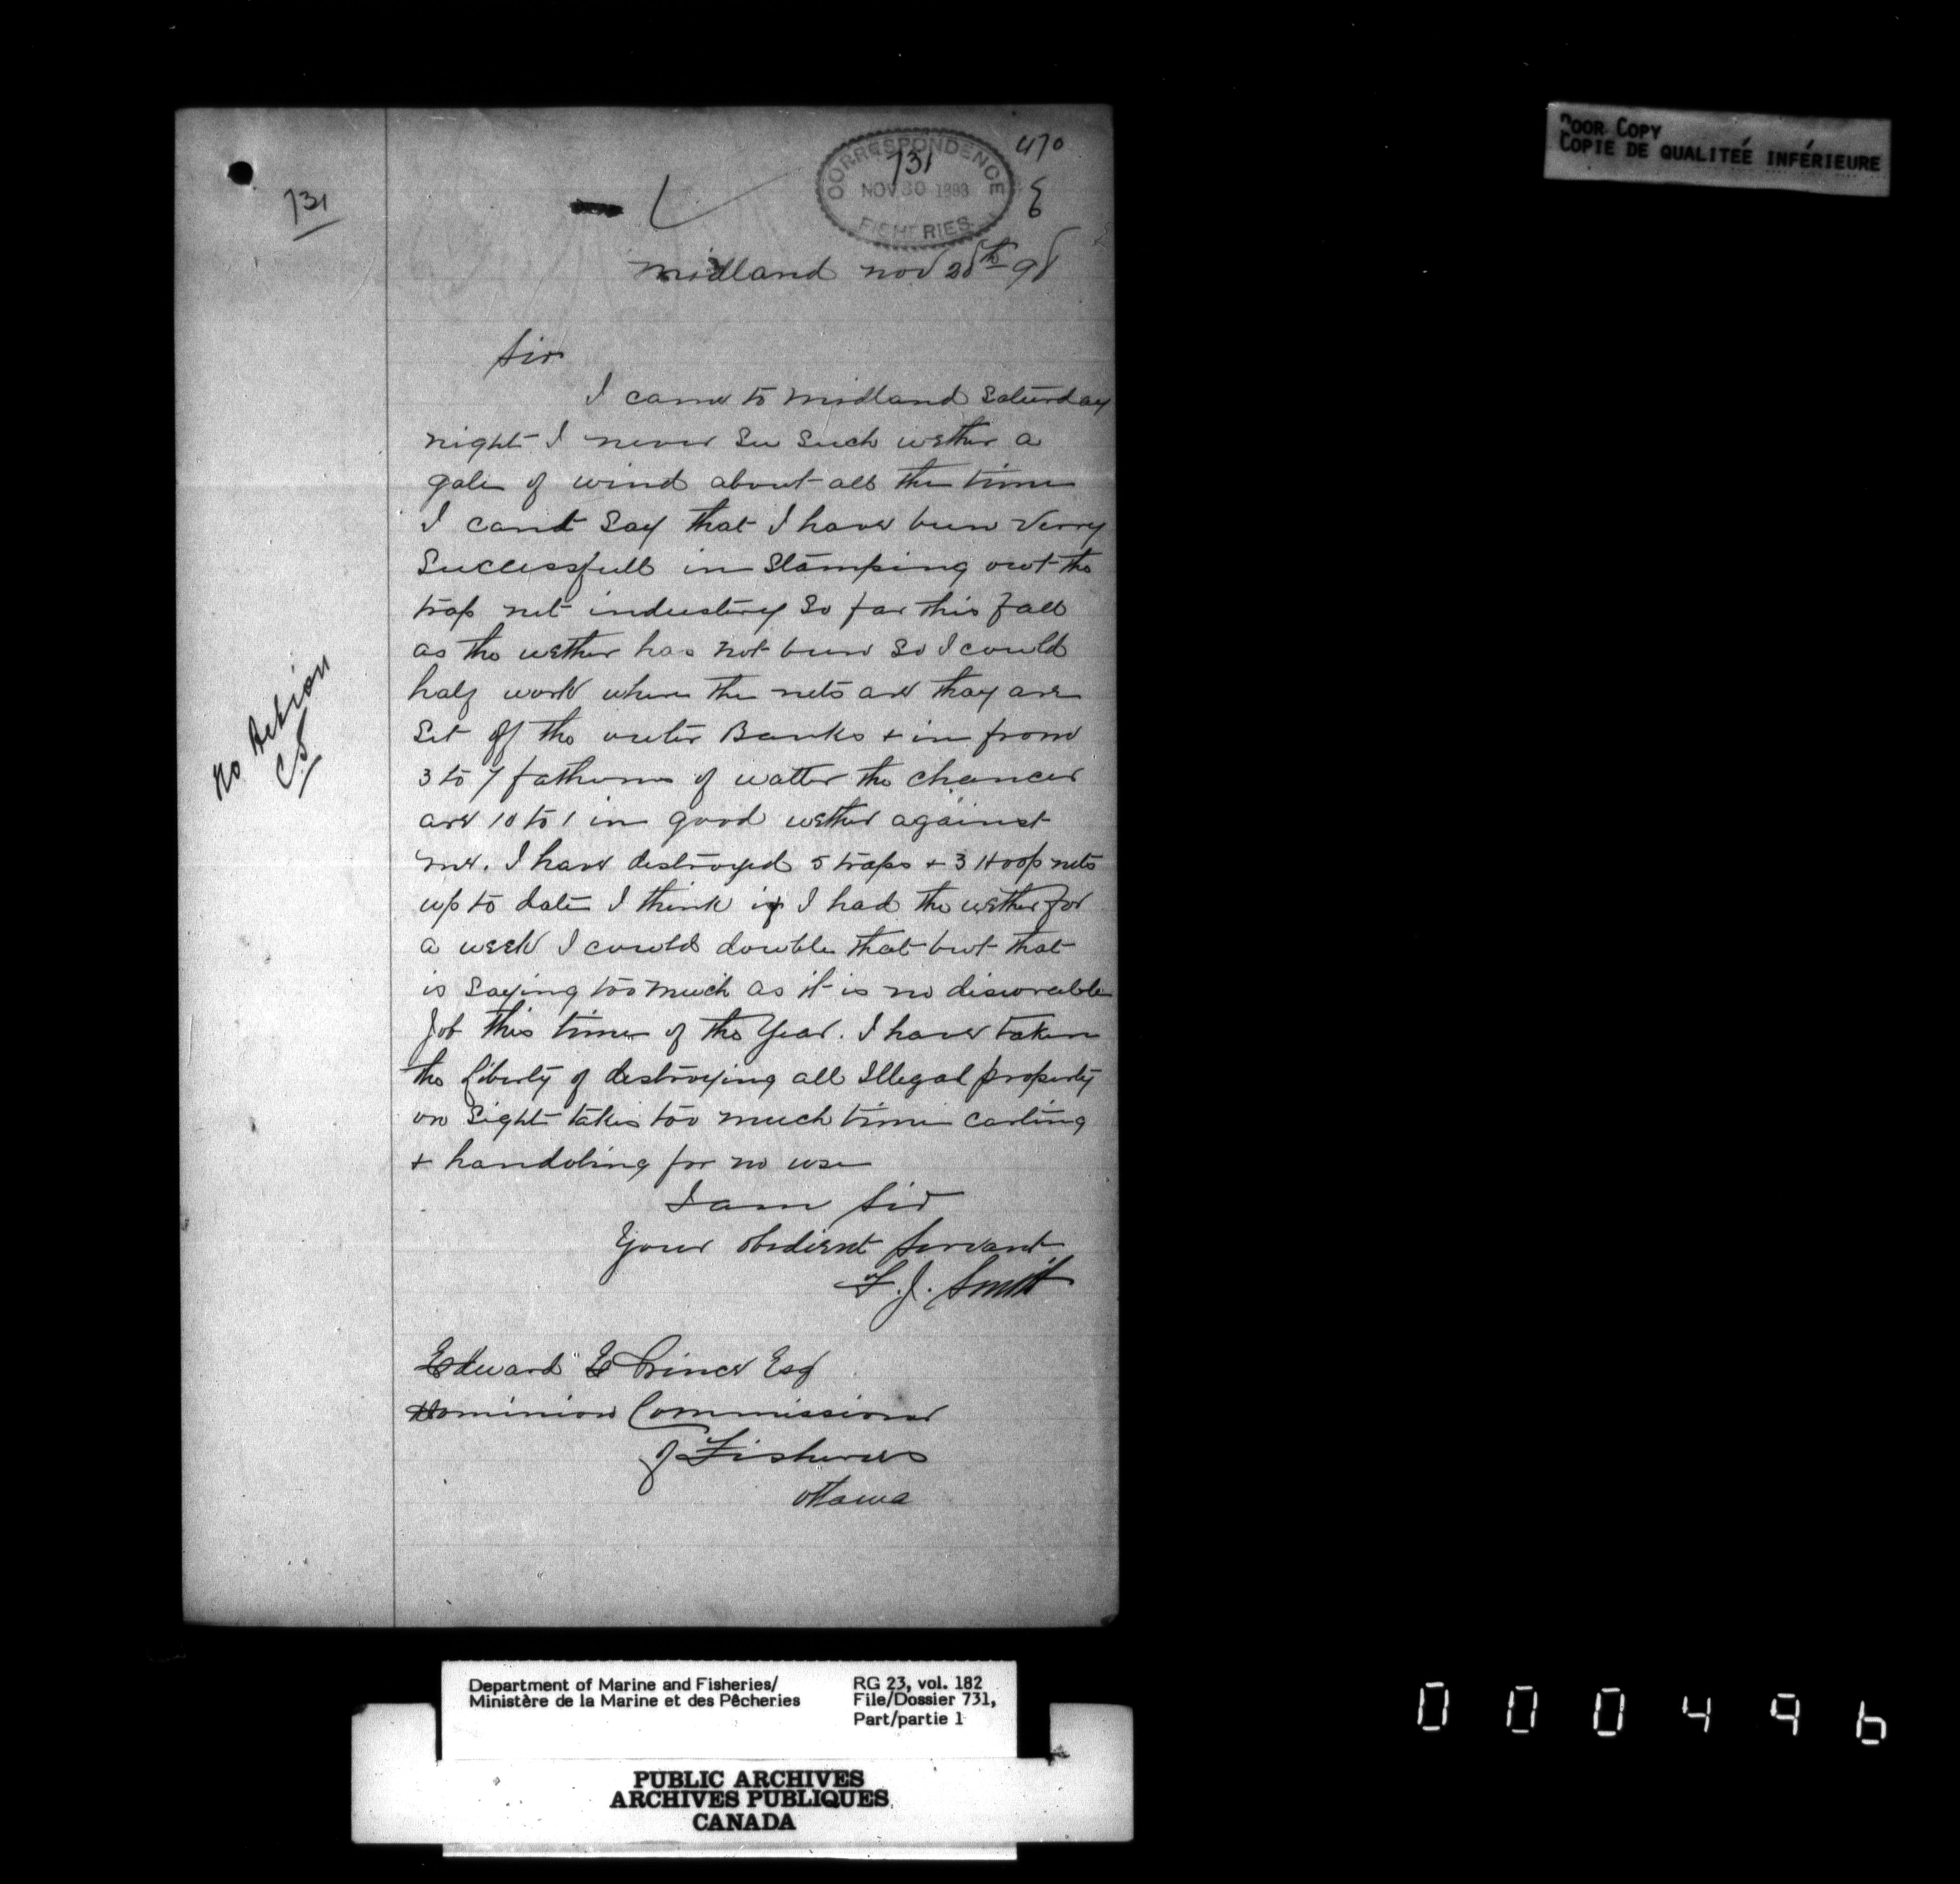 POOR COPY
COPIE DE QUALITEÉ INFÉRIEURE
470
CORRESPONDENCE
731
NOV 30 1898
FISHERIES
731
Midland Nov 28th 98
Sir
I came to Midland Saturday
night I never see such wether a
gale of wind about all the time
I cant say that I have been verry
successfull in stamping out the
trap net industery so far this fall
as the wether has not been so I could
half work where the nets are thay are
set off the outer Banks & in from
3 to 7 fathoms of watter the chances
are 10 to 1 in good wether against
me. I have destroyed 5 traps & 3 Hoop nets
up to date I think if I had the wether for
a week I could double that but that
is saying too much as it is no
Job this time of the Year. I have taken
the Liberty of destroying all Illegal property
on sight takes too much time carting
& handoling for no use
I am Sir
Your obedient Servant
F. J. Smith
No Action
Edward E Prince Esq
Dominion Commissioner
of Fisheries
Ottawa
Department of Marine and Fisheries/
Ministère de la Marine et des Pêcheries
RG 23, vol. 182
File/Dossier 731,
Part/partie 1
PUBLIC ARCHIVES
ARCHIVES PUBLIQUES
CANADA
000496